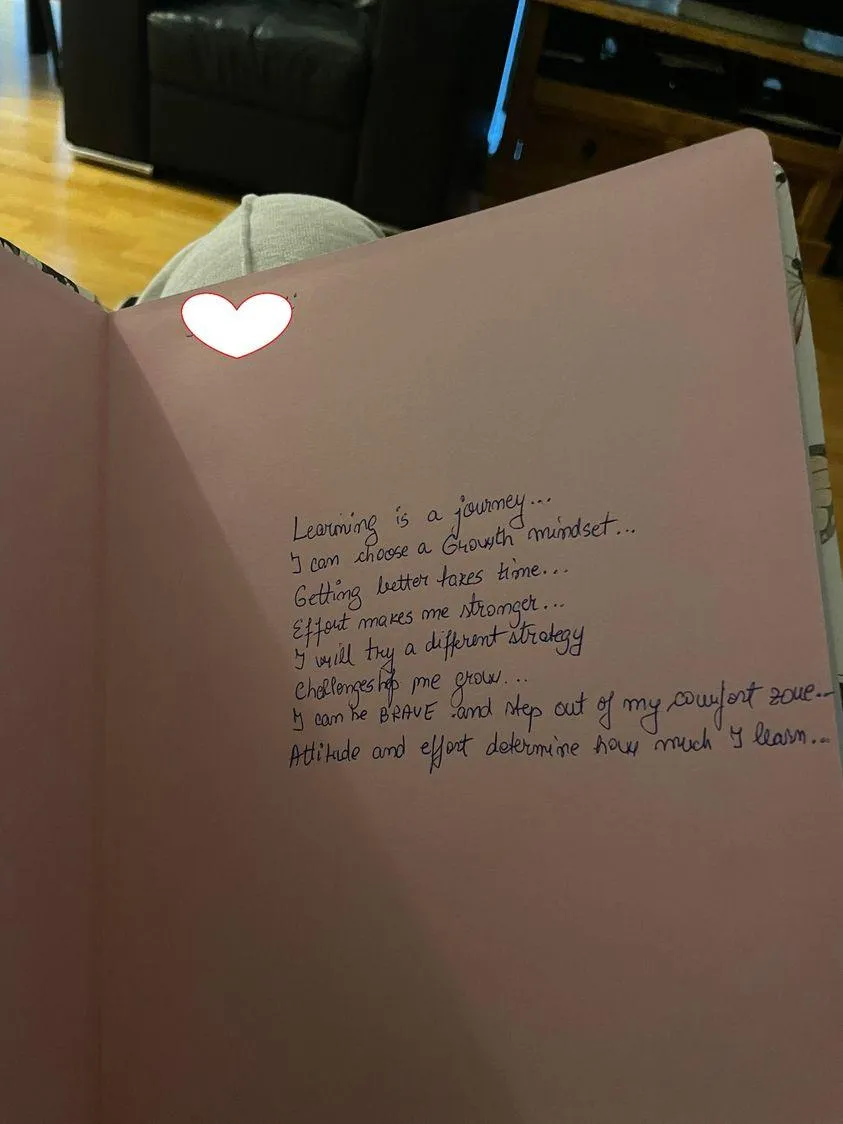 Learning is a journey...
I can choose a Growth mindset...
Getting better takes time...
Effort makes me stronger...
I will try a different strategy
Challenges help me grow...
I can be BRAVE and step out of my comfort zone...
Attitude and effort determine how much I learn...